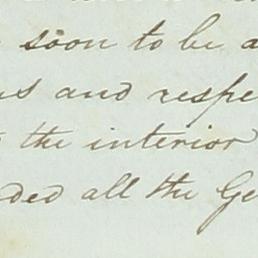 soon to be a
us and respe
the interior
ded all the Ge